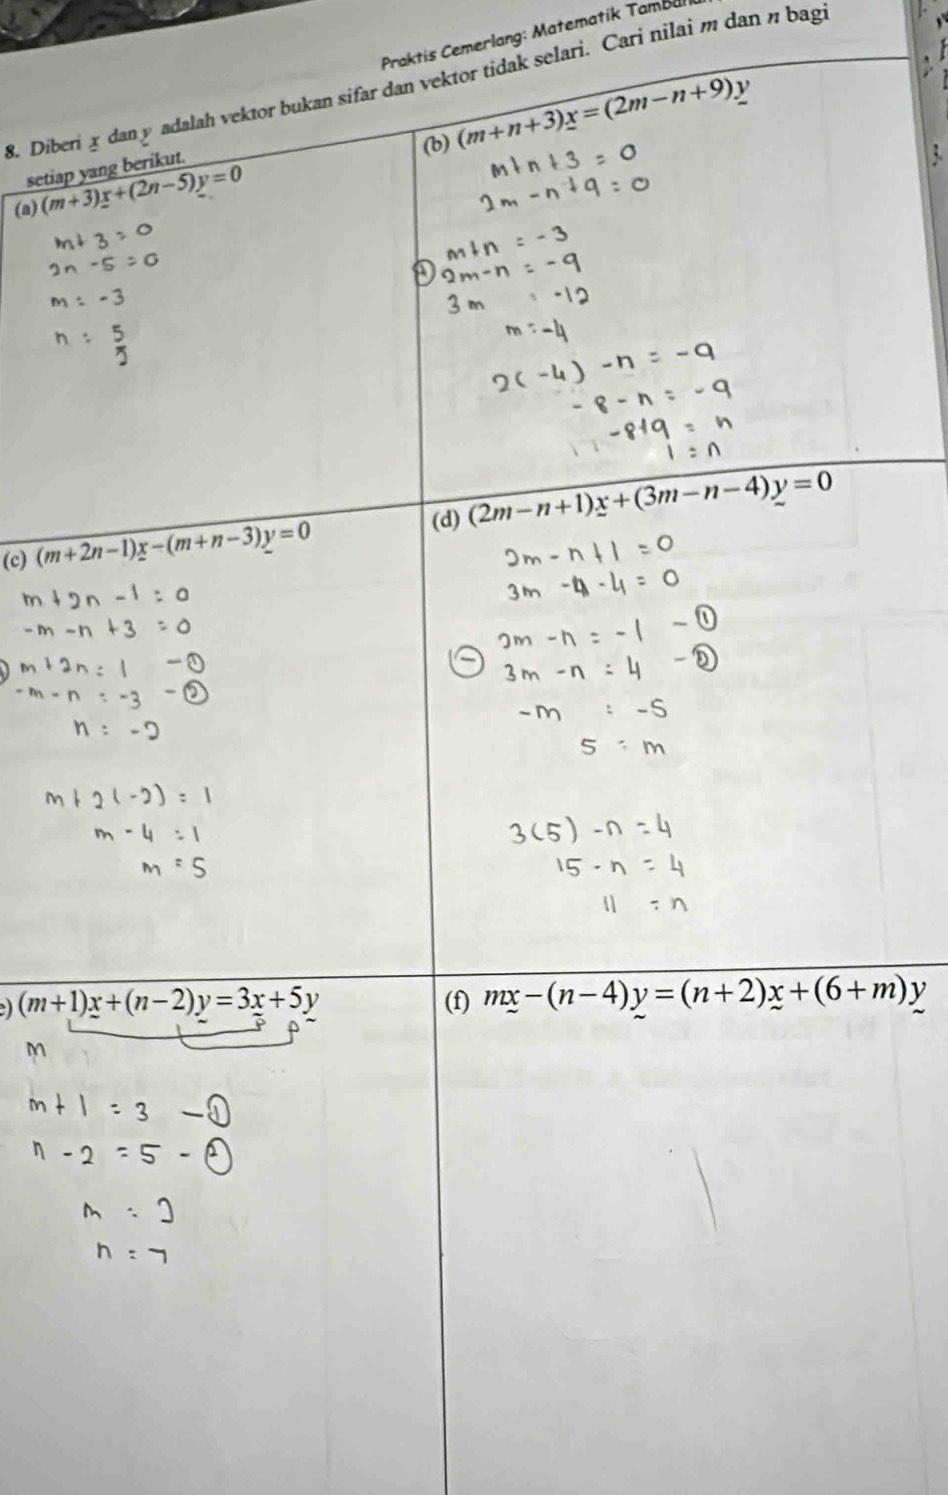 Praktis Cemerlang: Matematik
8. Diberi x dan y adalah vektor bukan sifar dan vektor tidak selari. Cari nilai m dan n bagi
setiap yang berikut.
(a) (m+3)x+(2n-5)y=0
m+3=0
2n-5=0
m=-3
n=5
(b) (m+n+3)x=(2m-n+9)y
m+n+3=0
2m-n+9=0
m+n=-3
2m-n=-9
3m=-12
m=-4
2(-4)-n=-9
-8-n=-9
-8+9=n
1=n
(c) (m+2n-1)x-(m+n-3)y=0
m+2n-1=0
-m-n+3=0
m+2n=1 -①
-m-n=-3 -②
n=-2
m+2(-2)=1
m-4=1
m=5
(d) (2m-n+1)x+(3m-n-4)y=0
2m-n+1=0
3m - -4=0
2m-n=-1 -①
⊖ 3m-n=4 -②
-m=-5
5=m
3(5)-n=4
15-n=4
11=n
(m+1)x+(n-2)y=3x+5y
m
m+1=3 -①
n-2=5 -②
m=2
n=7
(f) mx-(n-4)y=(n+2)x+(6+m)y